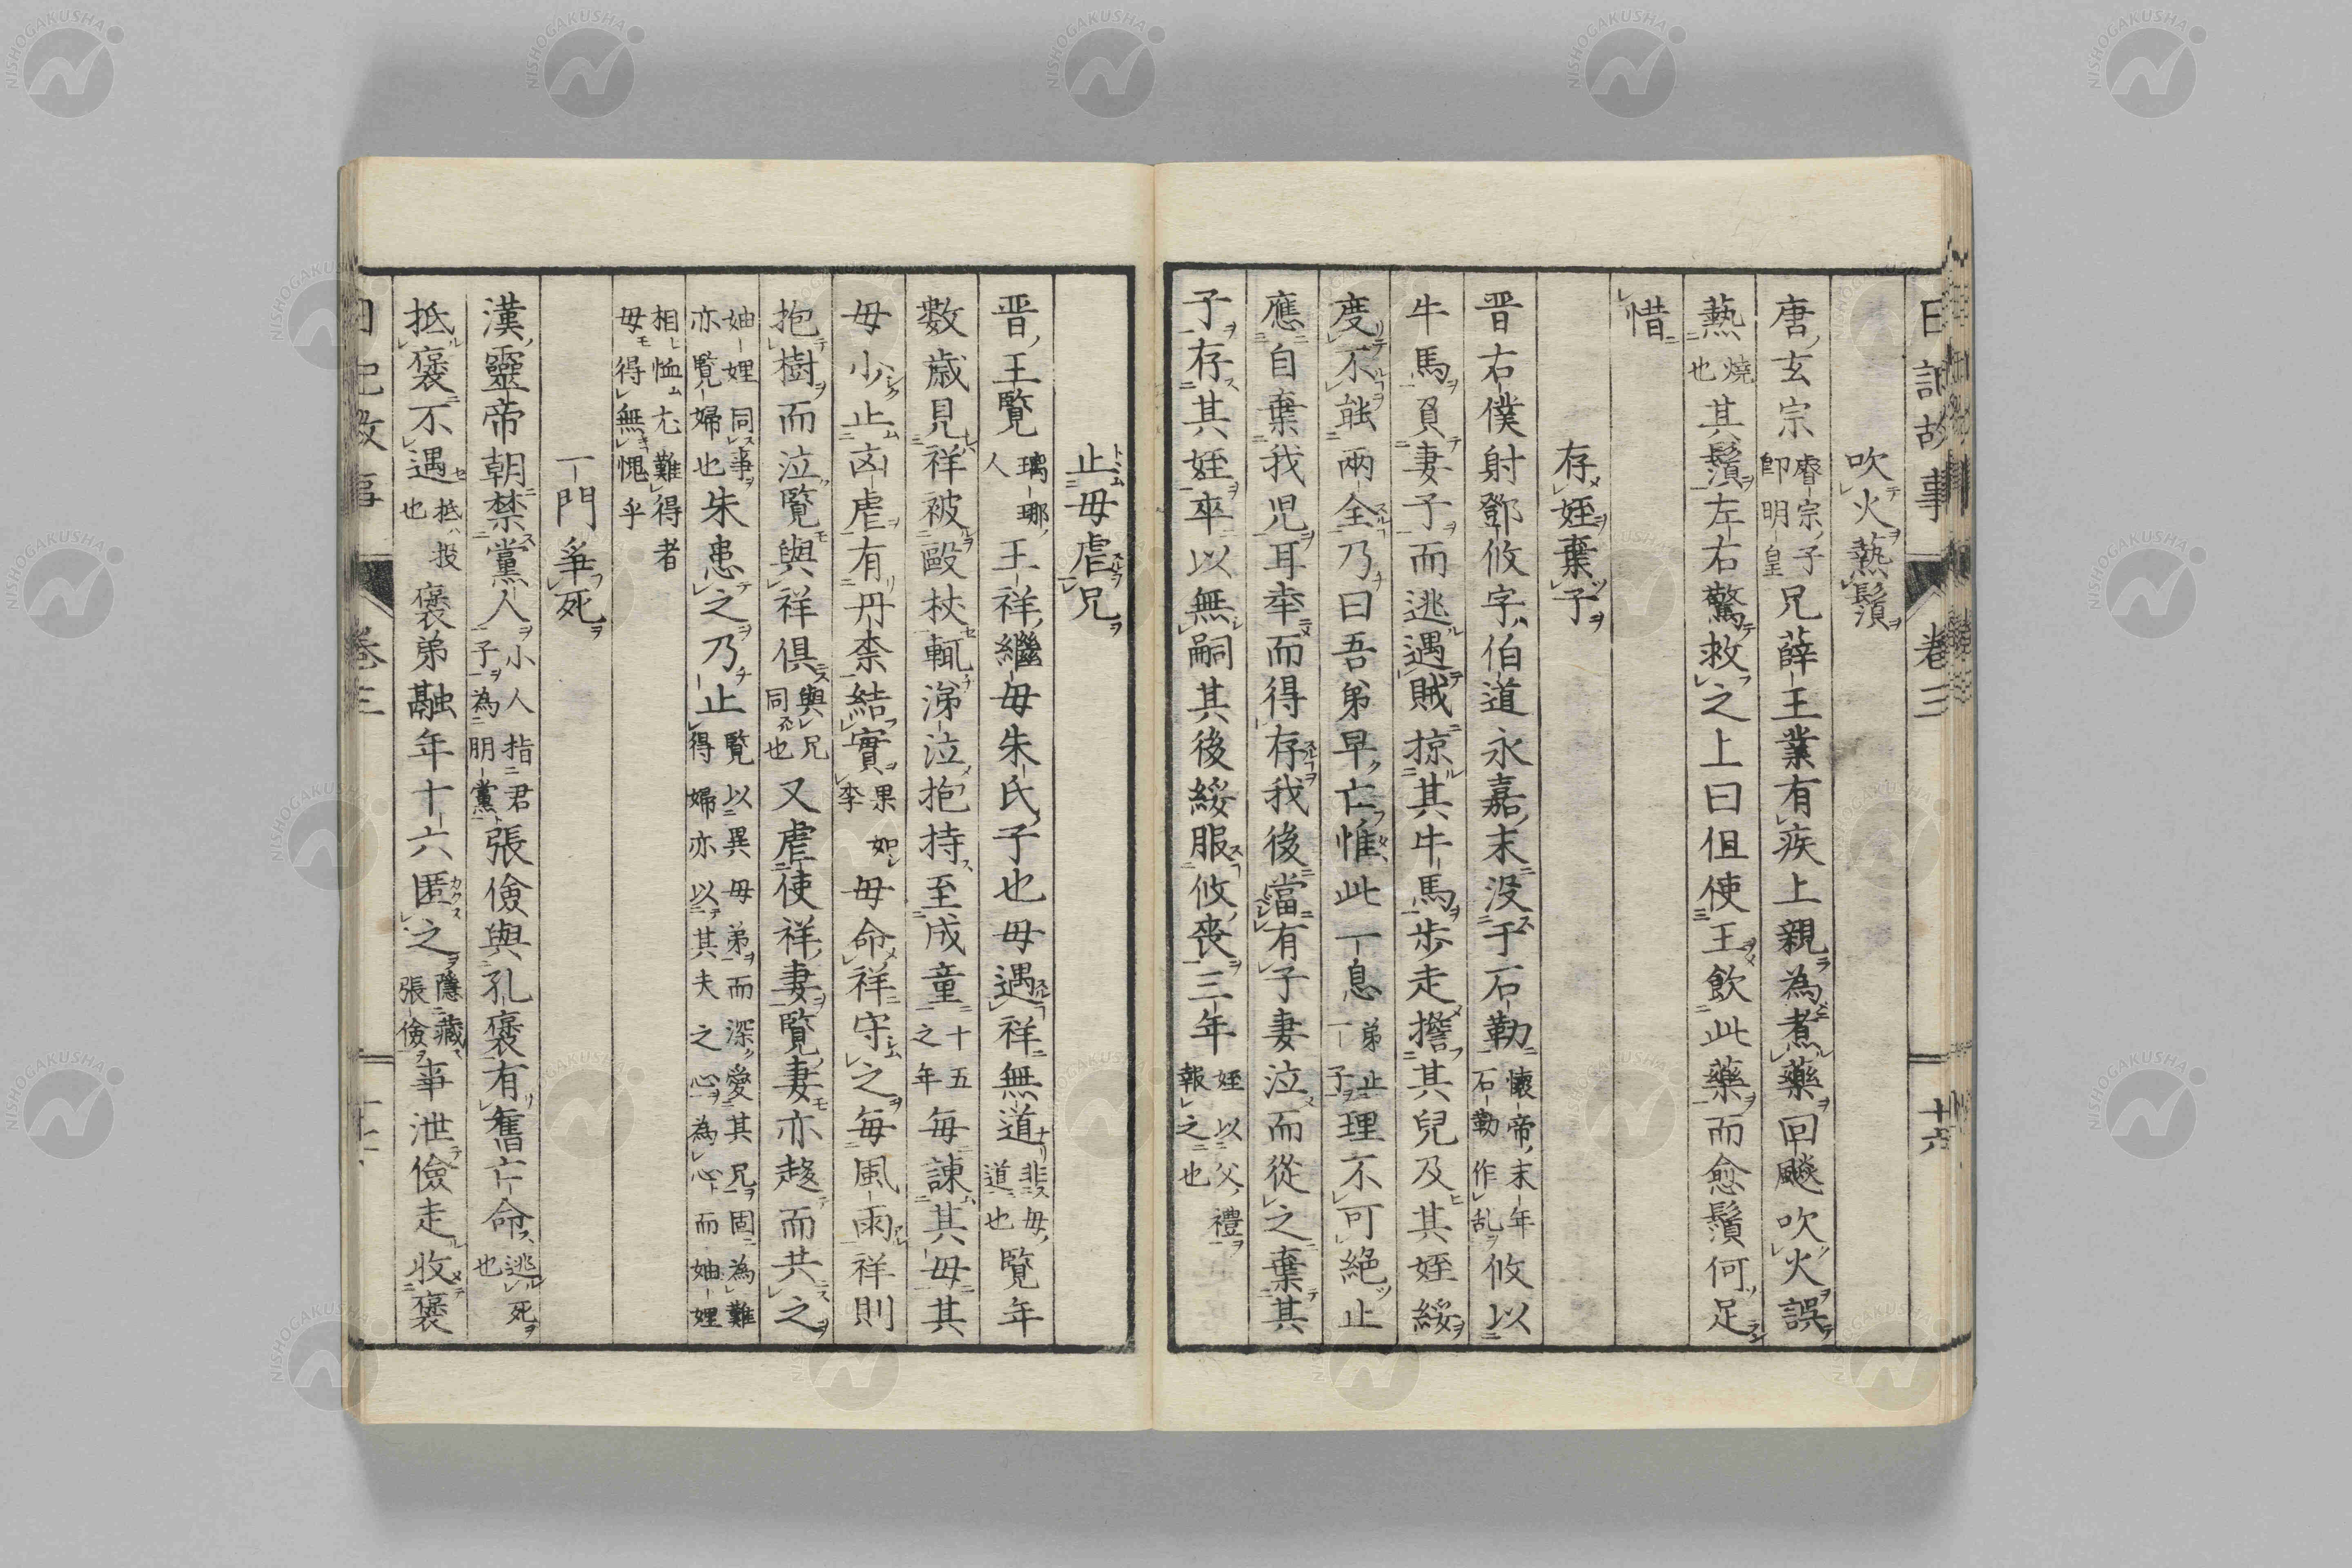 日記故事 卷三 十六
吹火爇鬚
唐玄宗睿宗子即明皇兄薛王業有疾上親為煮藥回飈吹火誤
爇燒也其鬚左右驚救之上曰但使王飲此藥而愈鬚何足
惜
存姪棄子
晋右僕射鄧攸字伯道永嘉末没于石勒懷帝末年石勒作乱攸以
牛馬負妻子而逃遇賊掠其牛馬步走擔其兒及其姪綏
度不能兩全乃曰吾弟早亡惟此一息弟止一子理不可絕止
應自棄我児耳幸而得存我後當有子妻泣而從之棄其
子存其姪卒以無嗣其後綏服攸喪三年姪以父禮報之也
止毋虐兄
晋王覽瑀琊人王祥繼毋朱氏子也毋遇祥無道非毋道也覽年
數歳見祥被毆杖輒涕泣抱持至成童十五之年每諫其毋其
毋少止凶虐有丹柰結實果如李毋命祥守之每風雨祥則
抱樹而泣覽與祥倶與兄同也又虐使祥妻覽妻亦趍而共之
妯娌同事亦覽婦也朱患之乃止覽以異毋弟而深愛其兄固為難得婦亦以其夫之心為心而妯娌
相恤尤難得者毋得無愧乎
一門爭死
漢靈帝朝禁黨人小人指君子為朋黨張儉與孔褒有舊亡命逃死也
抵褒不遇抵投也褒弟融年十六匿之隱藏張儉事泄儉走收褒
日記故事 卷三